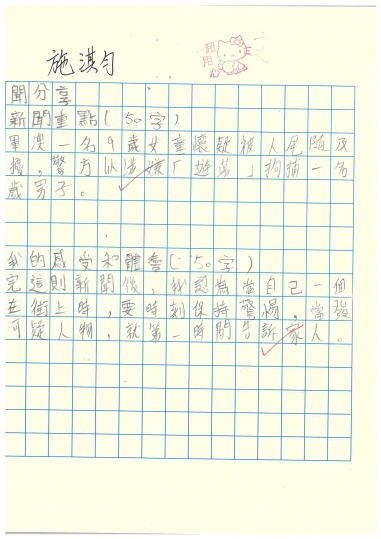 施淇勻
聞分享
新聞重點(50字)
軍澳一名9歲女童懷疑被人尾隨及
擾,警方以涉嫌「遊蕩」拘捕一名
歲男子。
我的感受和體會(50字)
完這則新聞後,我認為當自己一個
在街上時,要時刻保持警惕,當發
可疑人物,就第一時間告訴家人。